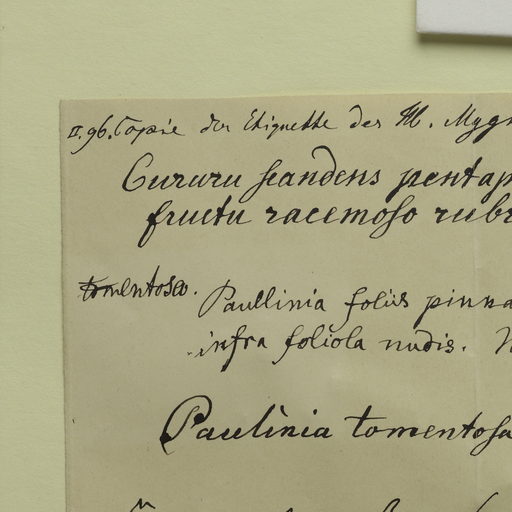 II. 96. Copie der Etiquette des H. Mygi
Cururu scandens pentap
fructu racemoso rubr
tomentosa. Paullinia foliis pinna
infra foliola nudis.
Paulinia tomentosa